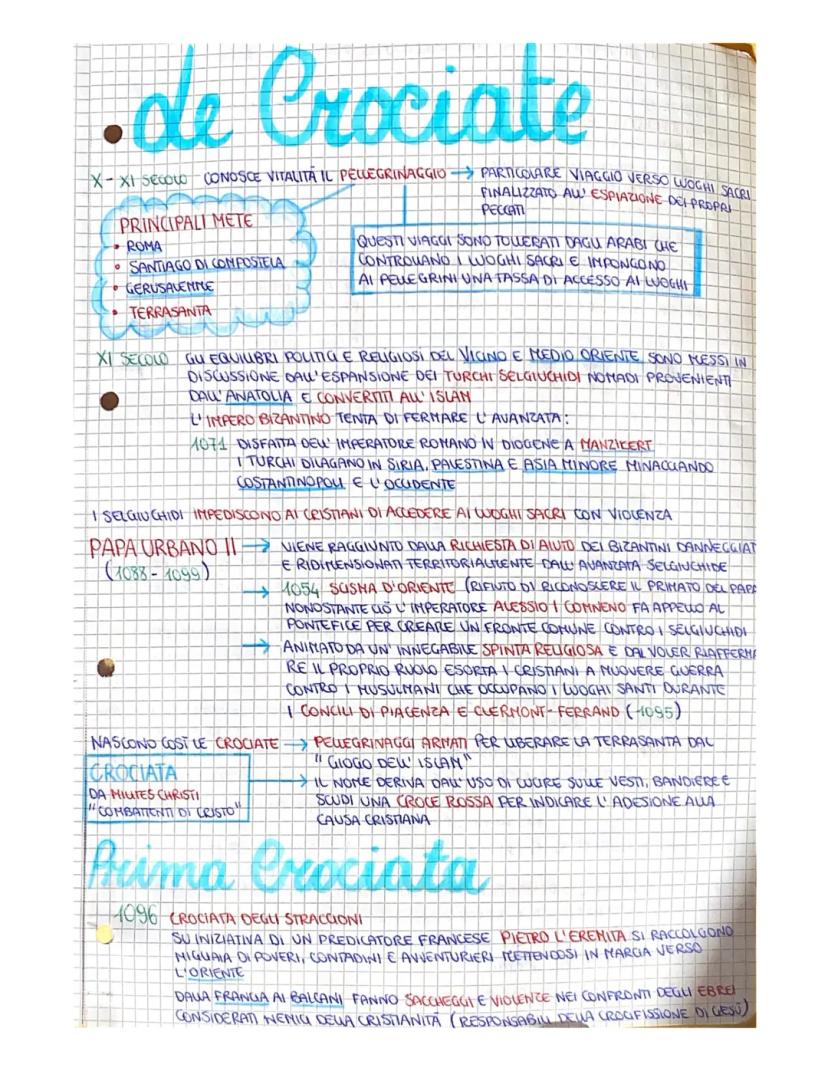 le Crociate
X-XI SECOLO CONOSCE VITALITÀ IL PELLEGRINAGGIO → PARTICOLARE VIAGGIO VERSO LUOGHI SACRI
FINALIZZATO ALL'ESPIAZIONE DEI PROPRI
PECCATI
PRINCIPALI METE
• ROMA
• SANTIAGO DI COMPOSTELA
• GERUSALEMME
• TERRASANTA
QUESTI VIAGGI SONO TOLLERATI DAGLI ARABI CHE
CONTROLLANO I LUOGHI SACRI E IMPONGONO
AI PELLEGRINI UNA TASSA DI ACCESSO AI LUOGHI
XI SECOLO GLI EQUILIBRI POLITICI E RELIGIOSI DEL VICINO E MEDIO ORIENTE SONO MESSI IN
DISCUSSIONE DALL'ESPANSIONE DEI TURCHI SELGIUCHIDI NOMADI PROVENIENTI
DALL'ANATOLIA E CONVERTITI ALL'ISLAM
L'IMPERO BIZANTINO TENTA DI FERMARE L'AVANZATA:
1071 DISFATTA DELL'IMPERATORE ROMANO IV DIOGENE A MANZIKERT
I TURCHI DILAGANO IN SIRIA, PALESTINA E ASIA MINORE MINACCIANDO
COSTANTINOPOLI E L'OCCIDENTE
I SELGIUCHIDI IMPEDISCONO AI CRISTIANI DI ACCEDERE AI LUOGHI SACRI CON VIOLENZA
PAPA URBANO II → VIENE RAGGIUNTO DALLA RICHIESTA DI AIUTO DEI BIZANTINI DANNEGGIAT
(1088-1099) E RIDIMENSIONATI TERRITORIALMENTE DALL'AVANZATA SELGIUCHIDE
→ 1054 SCISMA D'ORIENTE (RIFIUTO DI RICONOSCERE IL PRIMATO DEL PAPA
NONOSTANTE CIÒ L'IMPERATORE ALESSIO I COMNENO FA APPELLO AL
PONTEFICE PER CREARE UN FRONTE COMUNE CONTRO I SELGIUCHIDI
→ ANIMATO DA UN'INNEGABILE SPINTA RELIGIOSA E DAL VOLER RIAFFERMA
RE IL PROPRIO RUOLO ESORTA I CRISTIANI A MUOVERE GUERRA
CONTRO I MUSULMANI CHE OCCUPANO I LUOGHI SANTI DURANTE
I CONCILI DI PIACENZA E CLERMONT-FERRAND (1095)
NASCONO COSÌ LE CROCIATE → PELLEGRINAGGI ARMATI PER LIBERARE LA TERRASANTA DAL
"GIOGO DELL'ISLAM"
CROCIATA
DA MILITES CHRISTI
"COMBATTENTI DI CRISTO"
→ IL NOME DERIVA DALL'USO DI CUCIRE SULLE VESTI, BANDIERE E
SCUDI UNA CROCE ROSSA PER INDICARE L'ADESIONE ALLA
CAUSA CRISTIANA
Prima Crociata
1096 CROCIATA DEGLI STRACCIONI
SU INIZIATIVA DI UN PREDICATORE FRANCESE PIETRO L'EREMITA SI RACCOLGONO
MIGLIAIA DI POVERI, CONTADINI E AVVENTURIERI METTENDOSI IN MARCIA VERSO
L'ORIENTE
DALLA FRANCIA AI BALCANI FANNO SACCHEGGI E VIOLENZE NEI CONFRONTI DEGLI EBREI
CONSIDERATI NEMICI DELLA CRISTIANITÀ (RESPONSABILI DELLA CROCIFISSIONE DI GESÙ)